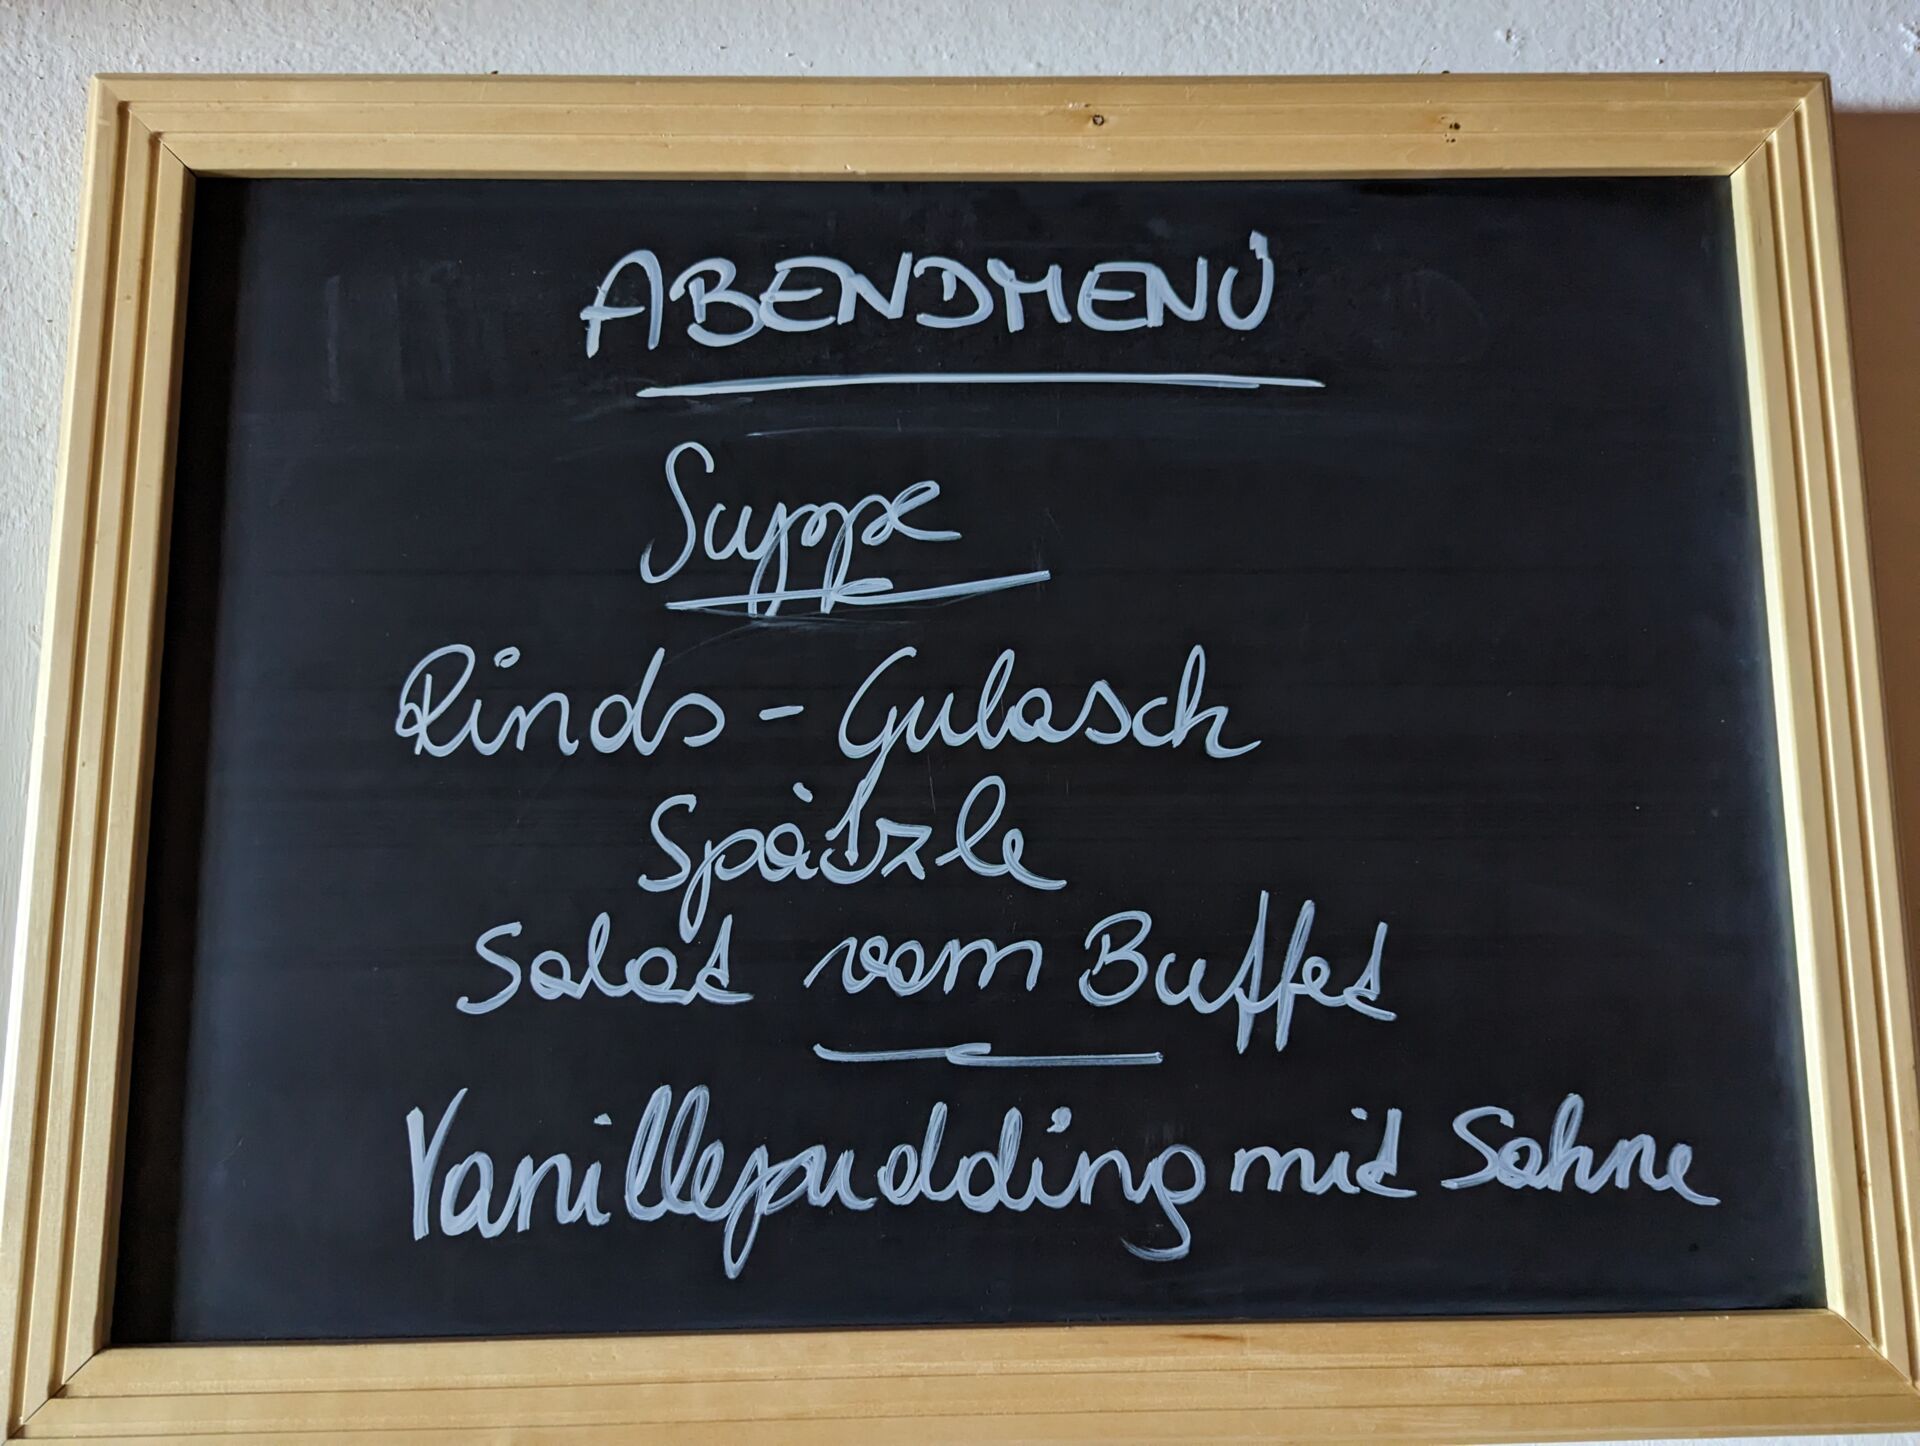 ABENDMENÜ
Suppe
Rinds - Gulasch
Spätzle
Salat vom Buffet
Vanillepudding mit Sahne